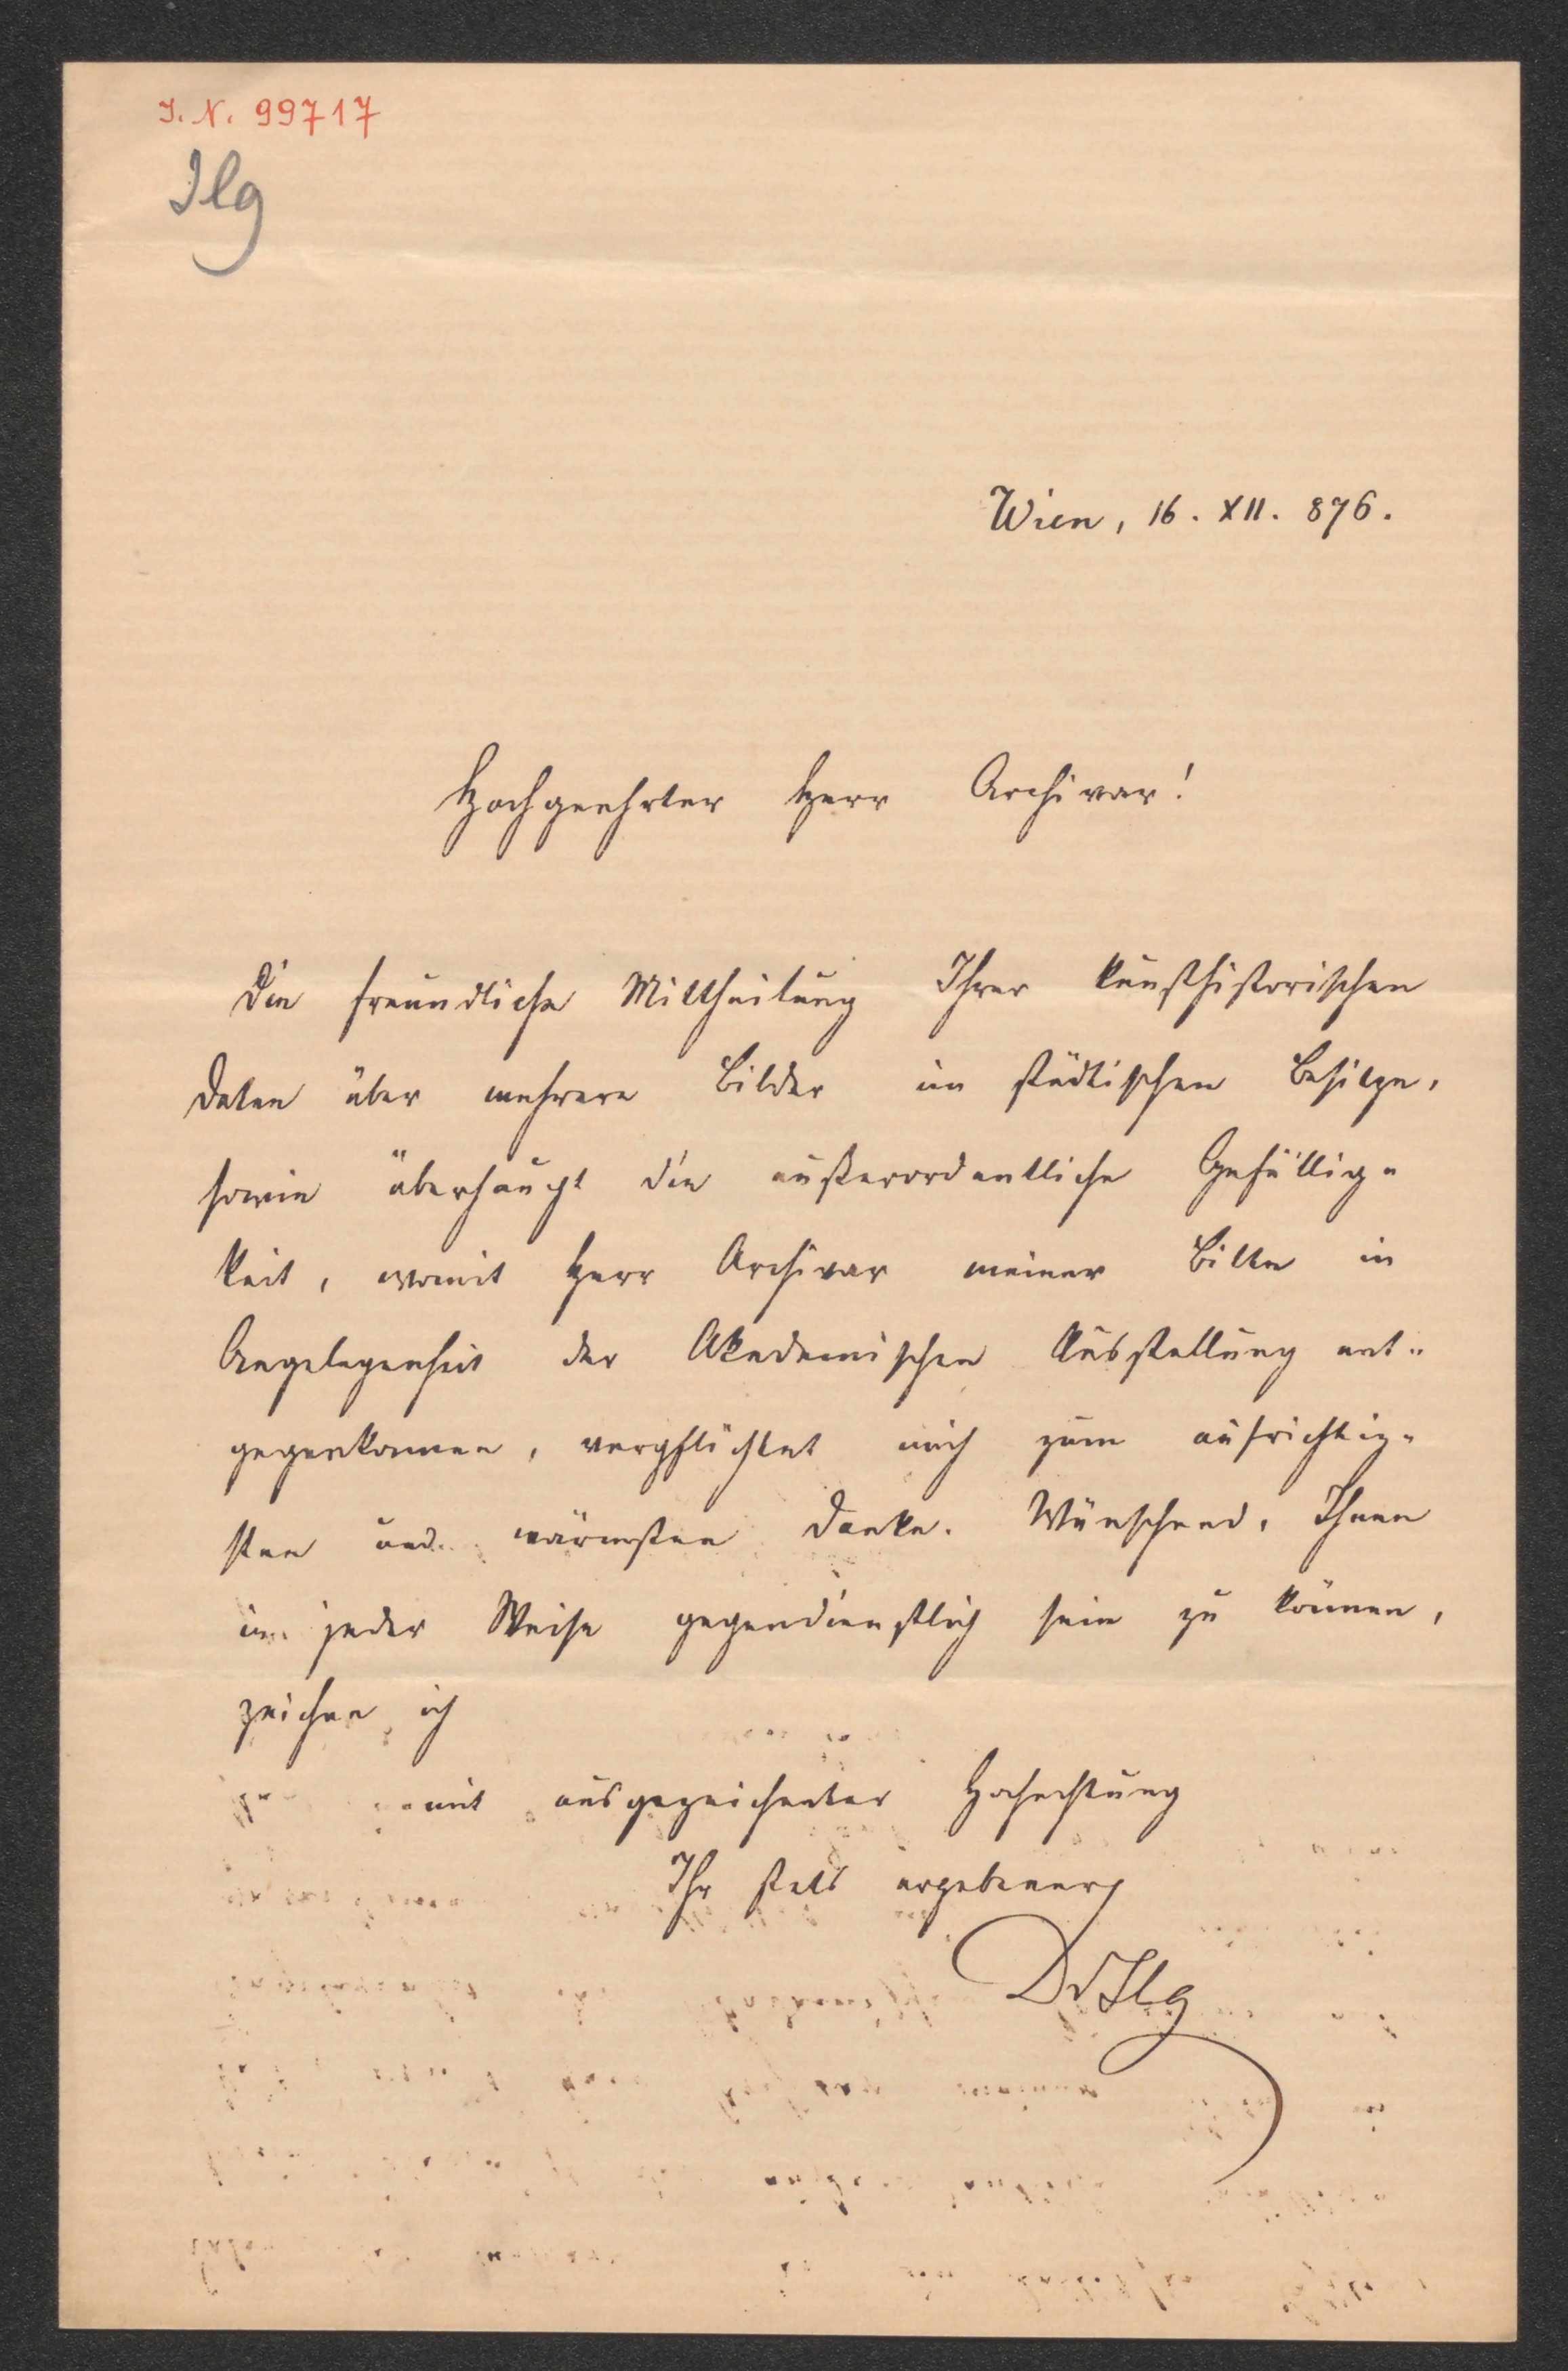 I. N. 99717
Ilg
Wien, 16. XII. 876.
Hochgeehrter Herr Archivar!
Die freundliche Mittheilung Ihrer kunsthistorischen
Daten über mehrere Bilder im städtischen Besitze,
sowie überhaupt die außerordentliche Gefällig-
keit, womit Herr Archivar meiner Bitte in
Angelegenheit der Akademischen Ausstellung ent-
gegenkommen, verpflichtet mich zum aufrichtig-
sten und wärmsten Danke. Wünschend, Ihnen
in jeder Weise gegendienstlich sein zu können,
zeichne ich
mit ausgezeichneter Hochachtung
Ihr stets ergebener
Dr Ilg